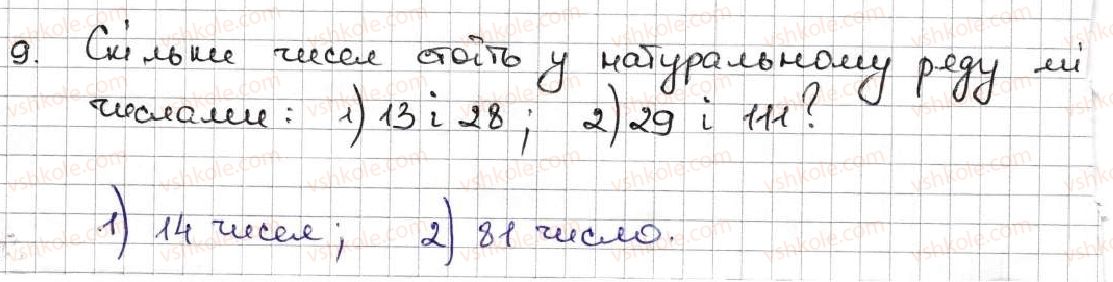 9. Скільки чисел стоїть у натуральному ряду мі
числами: 1) 13 і 28; 2) 29 і 111?
1) 14 чисел; 2) 81 число.